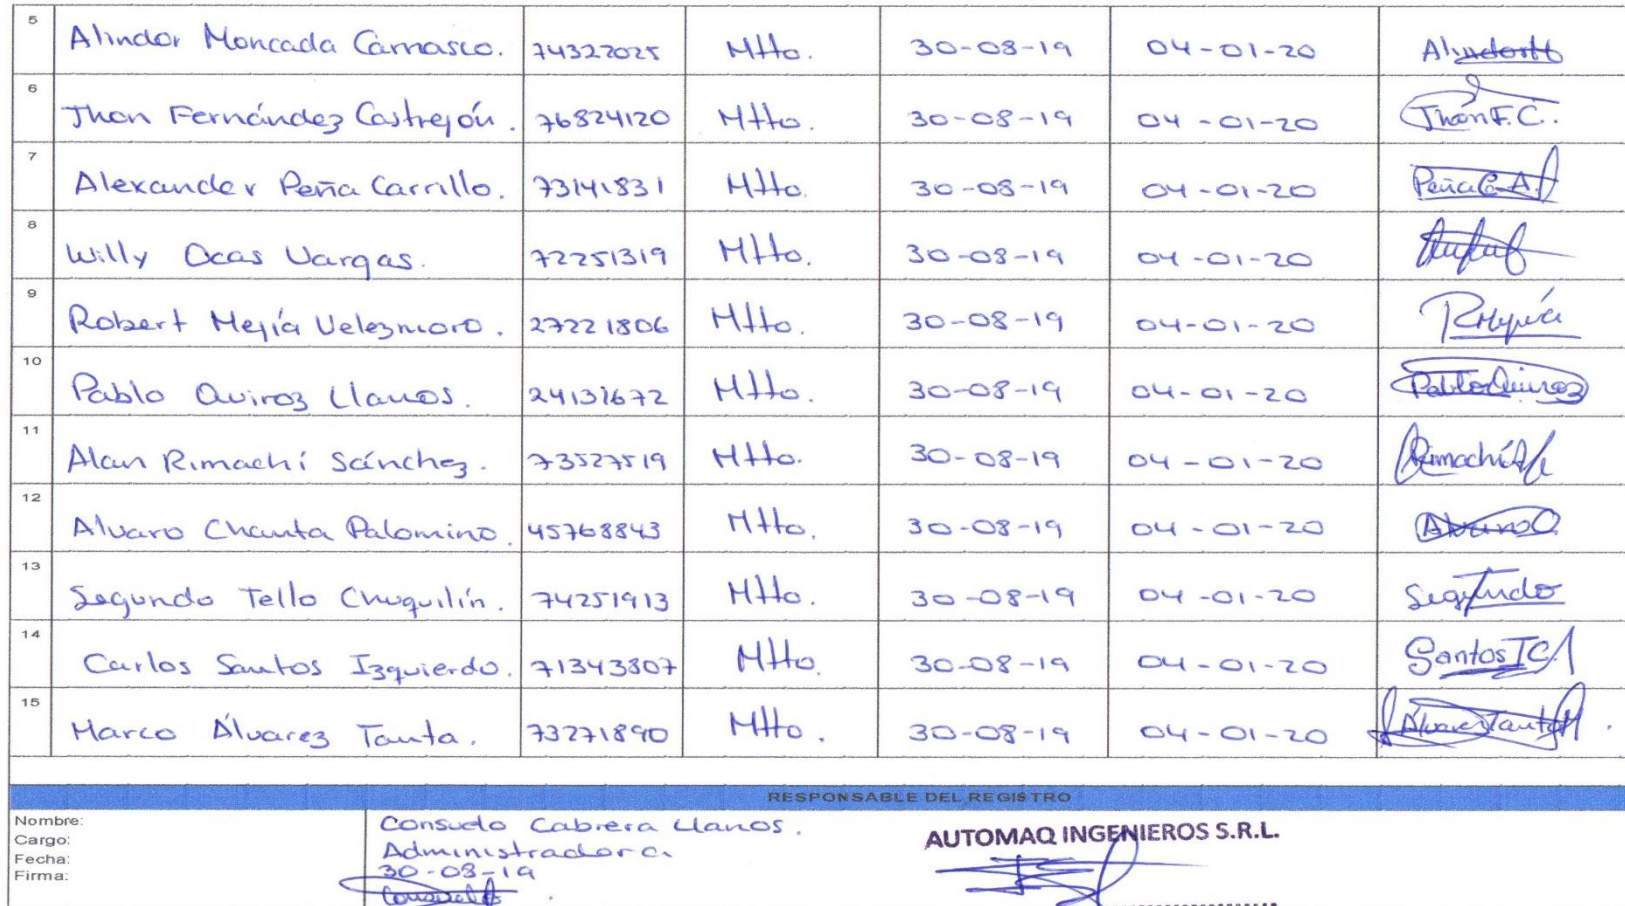 5 Alindor Moncada Carrasco. 74322025 Mtto. 30-08-19 04-01-20 Alindor
6 Jhon Fernández Castrejón. 76824120 Mtto. 30-08-19 04-01-20 Jhon F.C.
7 Alexander Peña Carrillo. 73141831 Mtto. 30-08-19 04-01-20 Peña C. A.
8 Willy Ocas Vargas. 72251319 Mtto. 30-08-19 04-01-20
9 Robert Mejía Velezmoro. 27221806 Mtto. 30-08-19 04-01-20 RMejía
10 Pablo Quiroz Llanos. 24131672 Mtto. 30-08-19 04-01-20 Pablo Quiroz
11 Alan Rimachi Sánchez. 73527519 Mtto. 30-08-19 04-01-20 Rimachi
12 Alvaro Chanta Palomino. 45768843 Mtto. 30-08-19 04-01-20 Alvaro
13 Segundo Tello Chuquilín. 74251913 Mtto. 30-08-19 04-01-20 Segundo
14 Carlos Santos Izquierdo. 71343807 Mtto. 30-08-19 04-01-20 Santos I C
15 Marco Álvarez Tanta. 73271890 Mtto. 30-08-19 04-01-20 Álvarez Tanta M
RESPONSABLE DEL REGISTRO
Nombre: Consuelo Cabrera Llanos.
Cargo: Administradora
Fecha: 30-08-19
Firma: Consuelo
AUTOMAQ INGENIEROS S.R.L.